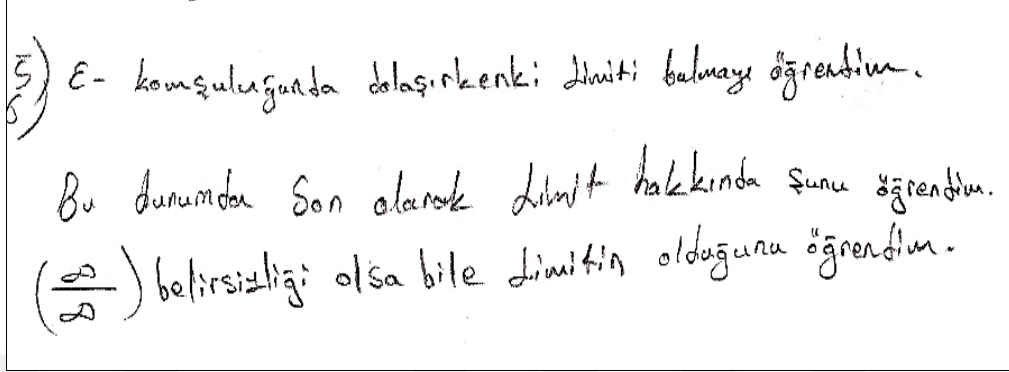 5) ε- komşuluğunda dolaşırkenki limiti bulmayı öğrendim.
6
Bu durumda Son olarak Limit hakkında şunu öğrendim.
(∞/∞) belirsizliği olsa bile Limitin olduğunu öğrendim.